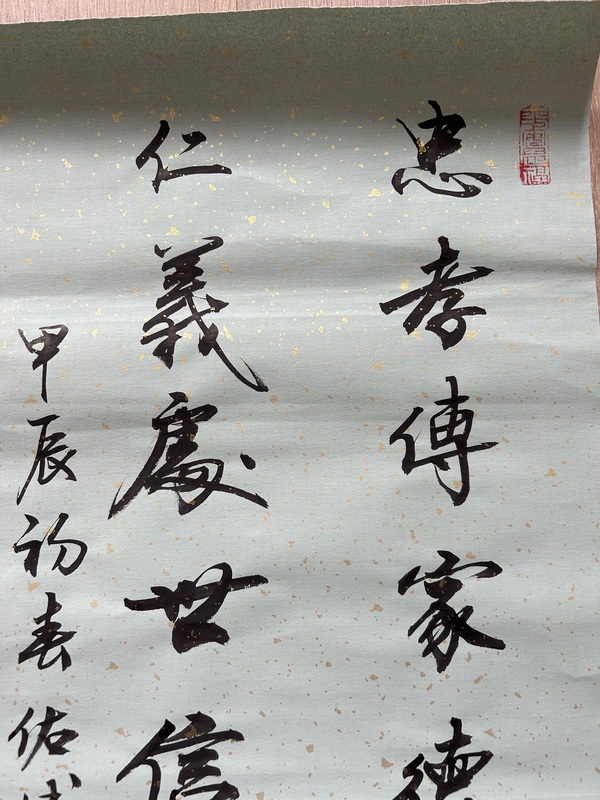 忠孝傳家德
仁義處世信
甲辰初春佑